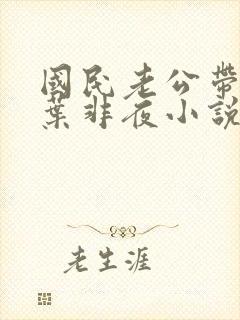 國民老公帶
葉非夜小說
老生涯